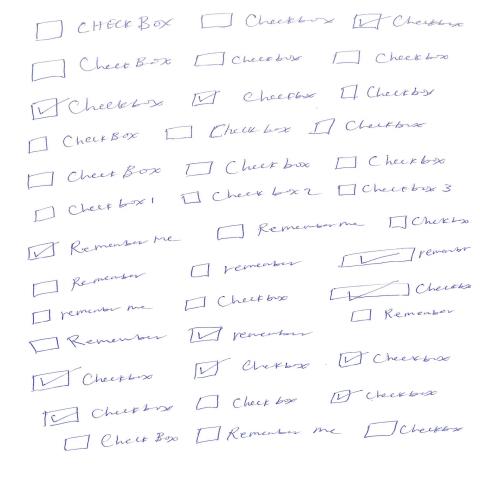 CHECKBOX Checkbox Checkbox
CheckBox Checkbox Checkbox
Checkbox Checkbox Checkbox
CheckBox Checkbox Checkbox
Check Box Check box Checkbox
Checkbox 1 Checkbox 2 Checkbox 3
Remember Me Remember me Checkbox
Remember remember remember
remember me Checkbox Checkbox
Remember remember Remember
Checkbox Checkbox Checkbox
Checkbox Checkbox Checkbox
Check Box Remember me Checkbox